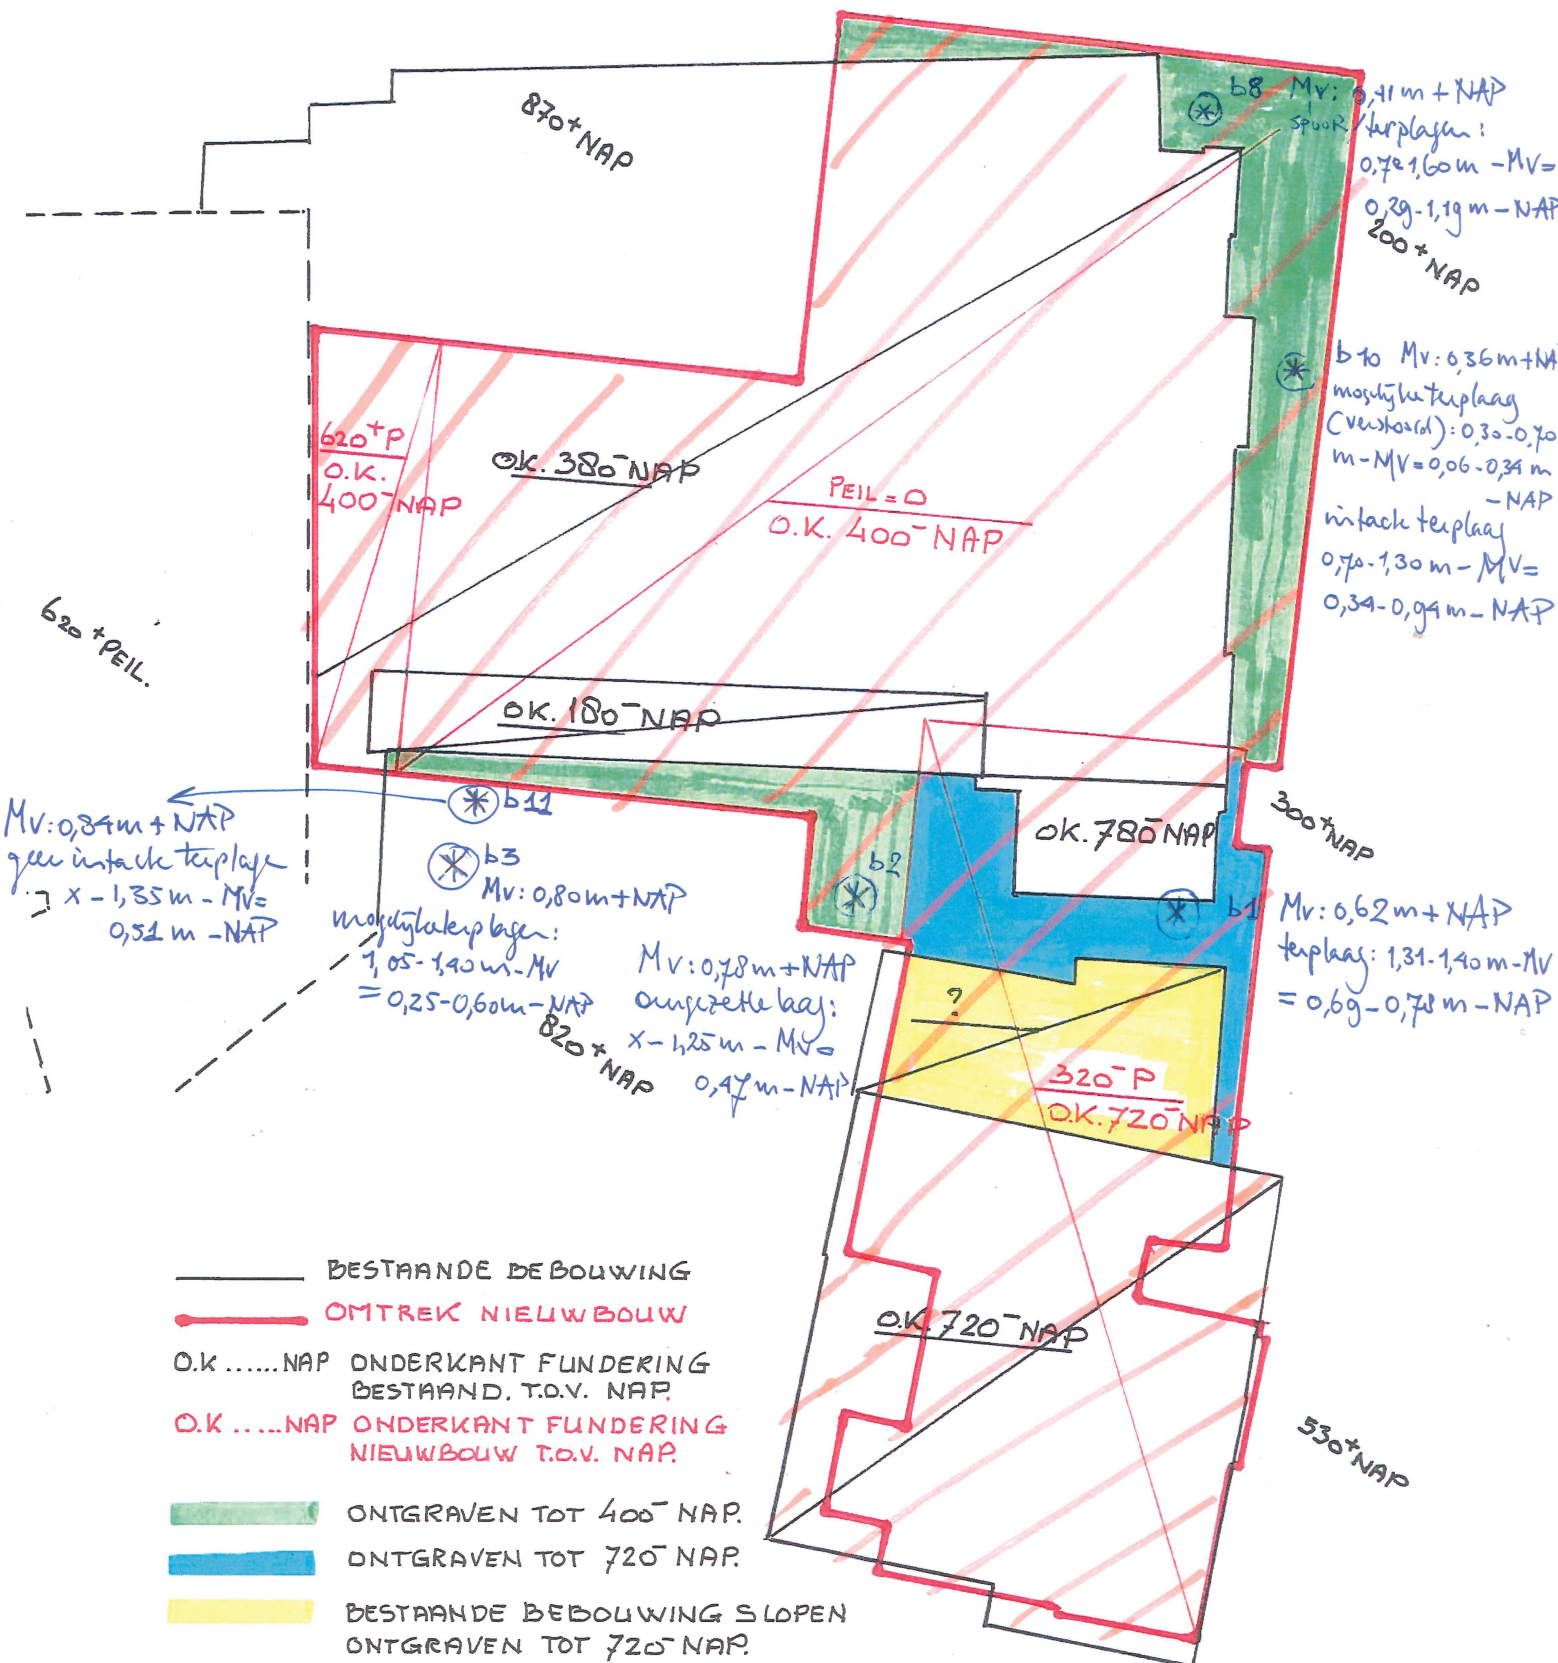 870⁺ NAP
b8 Mv: 0,41 m + NAP
spoor / terplagen:
0,70-1,60 m - MV =
0,29-1,19 m - NAP
200⁺ NAP
b10 Mv: 0,36m + NA
mogelijke terplaag
(verstoord): 0,30-0,70
m - MV = 0,06-0,34 m
- NAP
intack terplaag
0,70-1,30 m - MV =
0,34-0,94m - NAP
620⁺P
O.K.
400⁻ NAP
OK. 380⁻ NAP
PEIL = 0
O.K. 400⁻ NAP
620⁺ PEIL.
OK. 180⁻ NAP
b11
Mv: 0,84m + NAP
geen intack terplage
x - 1,35 m - MV =
0,51 m - NAP
b3
Mv: 0,80m + NAP
mogelijke terplagen:
1,05-1,40m - MV
= 0,25-0,60m - NAP
b2
Mv: 0,78m + NAP
omgezette laag:
x - 1,25 m - MV =
0,47 m - NAP
820⁺ NAP
OK. 780⁻ NAP
300⁺ NAP
b1
Mv: 0,62 m + NAP
terplaag: 1,31-1,40m - MV
= 0,69-0,78m - NAP
?
320⁻ P
O.K. 720⁻ NAP
O.K. 720⁻ NAP
530⁺ NAP
BESTAANDE BEBOUWING
OMTREK NIEUWBOUW
O.K ...... NAP ONDERKANT FUNDERING
BESTAAND. T.O.V. NAP.
O.K ..... NAP ONDERKANT FUNDERING
NIEUWBOUW T.O.V. NAP.
ONTGRAVEN TOT 400⁻ NAP.
ONTGRAVEN TOT 720⁻ NAP.
BESTAANDE BEBOUWING SLOPEN
ONTGRAVEN TOT 720⁻ NAP.